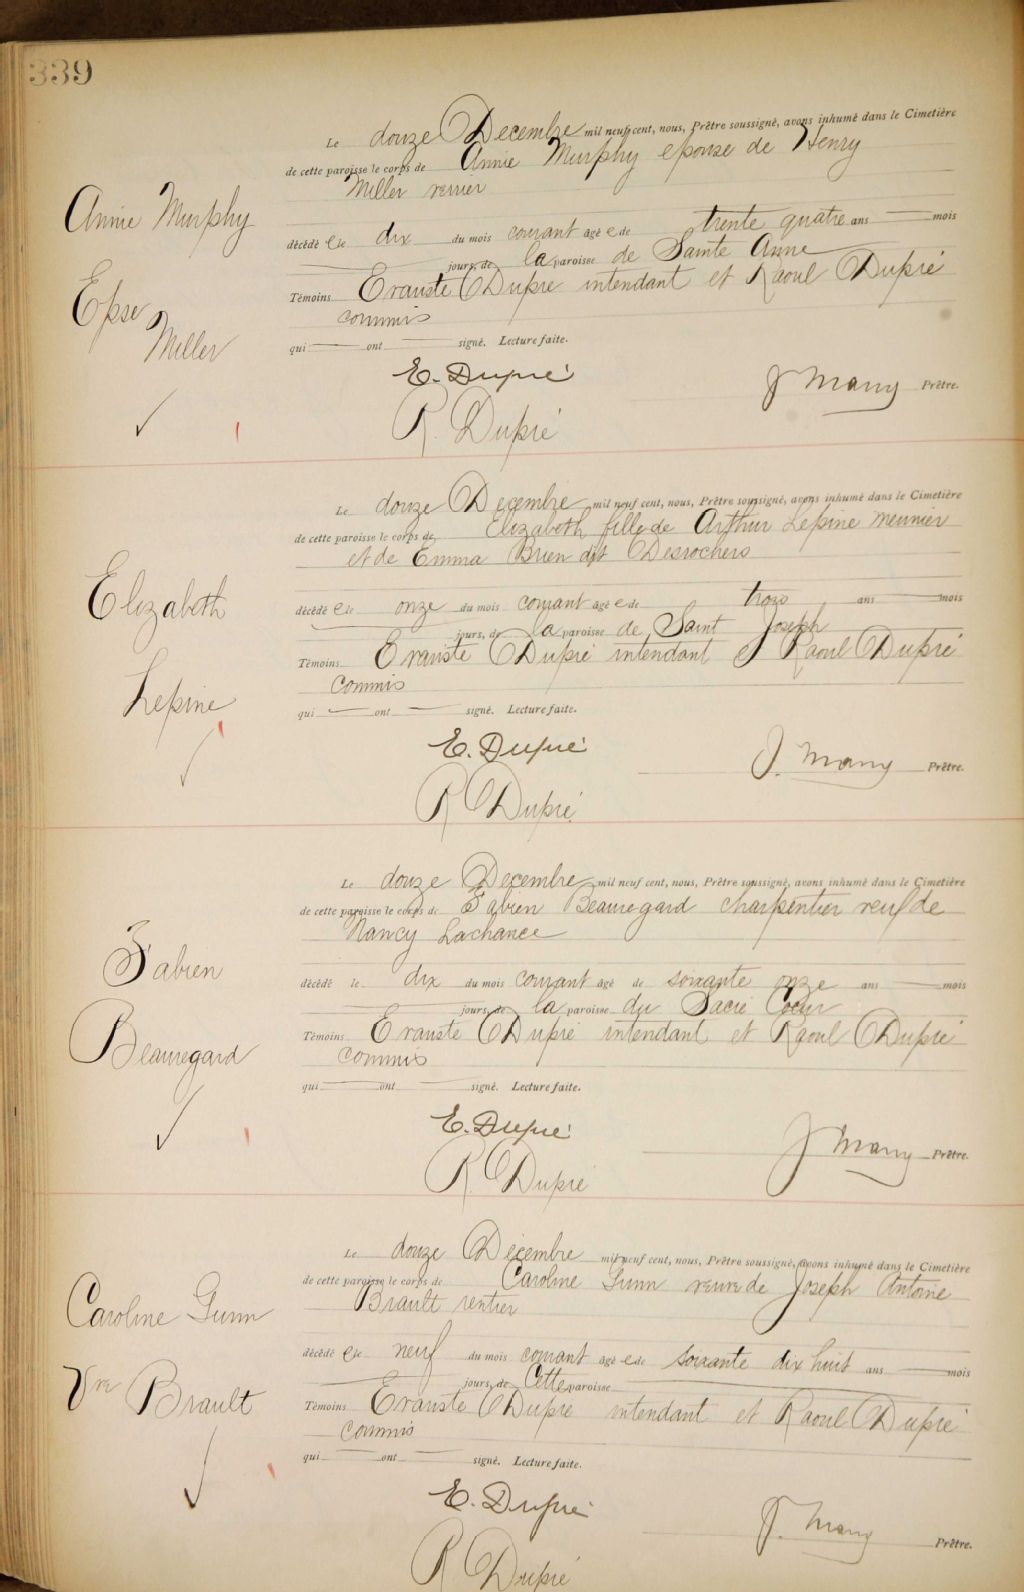 339
Le douze Decembre mil neuf cent, nous, Prêtre soussigné, avons inhumé dans le Cimetière
de cette paroisse le corps de Annie Murphy epouse de Henry
Miller
Annie Murphy
Epse
Miller
décédé e le dix du mois courant agé e de trente quatre ans — mois
— jours, de la paroisse de Sainte Anne
Témoins Erauste Dupré intendant et Raoul Dupré
commis
qui — ont — signé. Lecture faite.
E. Dupré
J Many Prêtre.
R. Dupré
Le douze Decembre mil neuf cent, nous, Prêtre soussigné, avons inhumé dans le Cimetière
de cette paroisse le corps de Elizabeth fille de Arthur Lepine meunier
et de Emma Brien dit Desrochers
Elizabeth
Lepine
décédé e le onze du mois courant agé e de trois ans — mois
— jours, de la paroisse de Saint Joseph
Témoins Erauste Dupré intendant & Raoul Dupré
commis
qui — ont — signé. Lecture faite.
E. Dupré
J. Many Prêtre.
R Dupré
Le douze Decembre mil neuf cent, nous, Prêtre soussigné, avons inhumé dans le Cimetière
de cette paroisse le corps de Fabien Beauregard charpentier veuf de
Nancy Lachance
Fabien
Beauregard
décédé le dix du mois courant agé de soixante onze ans — mois
— jours, de la paroisse du Sacré Coeur
Témoins Erauste Dupré intendant et Raoul Dupré
commis
qui — ont — signé. Lecture faite.
E. Dupré
J Many Prêtre.
R. Dupré
Le douze Décembre mil neuf cent, nous, Prêtre soussigné, avons inhumé dans le Cimetière
de cette paroisse le corps de Caroline Gunn veuve de Joseph Antoine
Brault rentier
Caroline Gunn
Vve Brault
décédé e le neuf du mois courant agé e de soixante dix huit ans — mois
— jours, de Cette paroisse —
Témoins Erauste Dupré intendant et Raoul Dupré
commis
qui — ont — signé. Lecture faite.
E. Dupré
J. Many Prêtre.
R Dupré